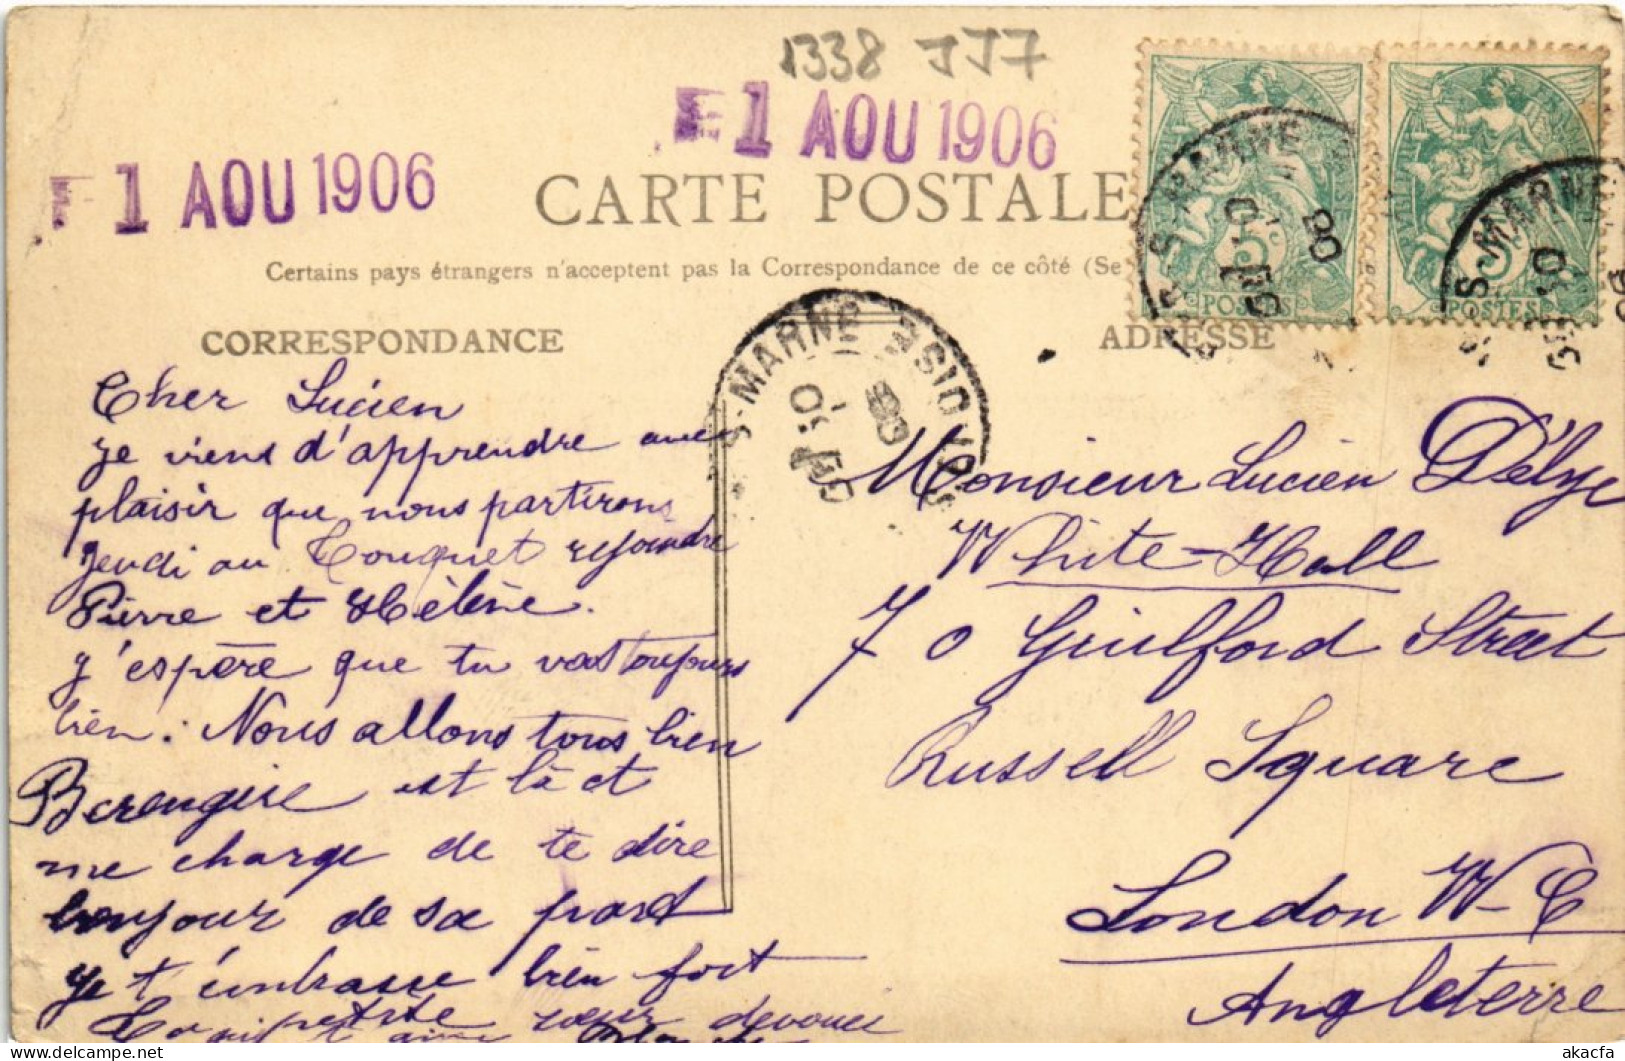 1338 JJ7
1 AOU 1906
1 AOU 1906
CARTE POSTALE
Certains pays étrangers n'acceptent pas la Correspondance de ce côté (Se
CORRESPONDANCE
Cher Lucien
je viens d'apprendre avec
plaisir que nous partirons
jeudi au Touquet rejoindre
Pierre et Hélène.
j'espère que tu vas toujours
bien : Nous allons tous bien
Berengère est là et
me charge de te dire
bonjour de sa part
je t'embrasse bien fort
Ta petite sœur dévouée
ADRESSE
Monsieur Lucien Délye
White-Hall
70 Guilford Street
Russell Square
London W-C
Angleterre
5c
POSTES
5c
POSTES
S-MARNE
S-MARNE
S-MARNE
akacfa